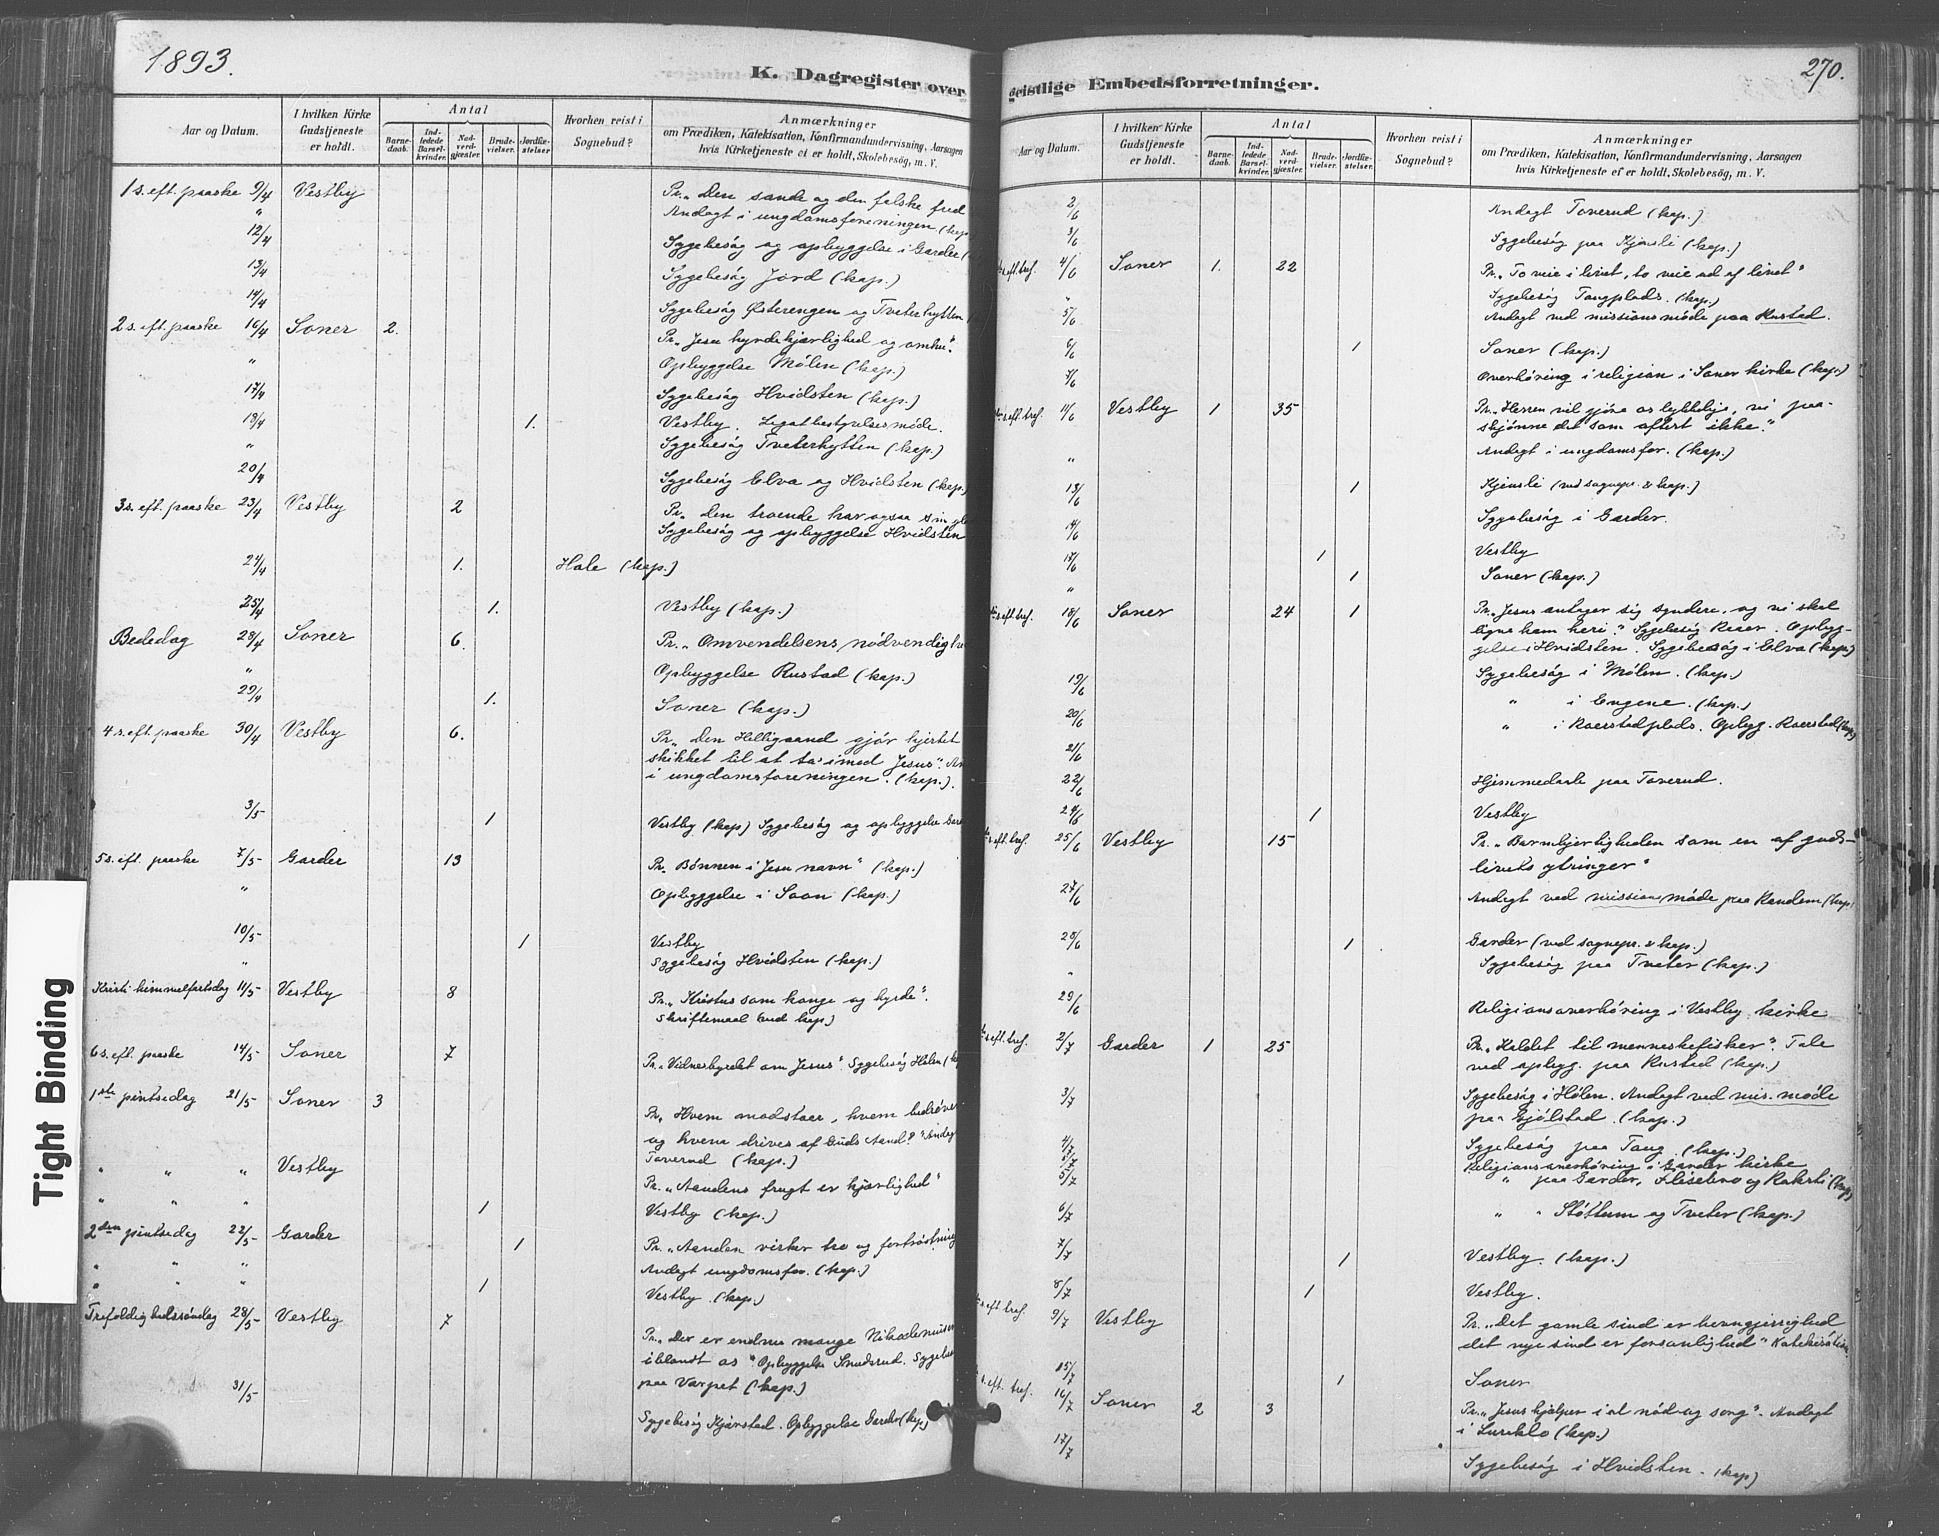 1893.
K. Dagregister over
Aar og Datum.
I hvilken Kirke Gudstjeneste er holdt.
Antal
Barne-daab.
Ind-ledede Barsel-kvinder.
Nad-verd-gjæster.
Brude-vielser.
Jordfæ-stelser.
Hvorhen reist i Sognebud?
Anmærkninger
om Prædiken, Katekisation, Konfirmandundervisning, Aarsagen
hvis Kirketjeneste ei er holdt, Skolebesøg, m. V.
1 s. eft. paaske 9/4 Vestby Pr. „Den sande og den falske fred
" Andagt i ungdomsforeningen (kap
12/4 Sygebesøg og opbyggelse i Garder (
13/4 Sygebesøg Jord (kap.)
14/4 Sygebesøg Østerengen og Tveterhytten
2 s. eft. paaske 16/4 Soner 2. Pr. „Jesu hyrdekjærlighed og omhu".
" Opbyggelse Mølen (kap.)
17/4 Sygebesøg Hvidsten (kap.)
19/4 1. Vestby. Legatbestyrelsesmøde.
" Sygebesøg Tveterhytten (kap.)
20/4 Sygebesøg Elva og Hvidsten (kap.)
3 s. eft. paaske 23/4 Vestby 2 Pr. „Den troende har ogsaa sin
Sygebesøg og opbyggelse Hvidsten
24/4 1. Hale (kap.)
25/4 1. Vestby (kap.)
Bededag 28/4 Soner 6. Pr. „Omvendelsens nødvendig
" Opbyggelse Rustad (kap.)
29/4 1. Soner (kap.)
4 s. eft. paaske 30/4 Vestby 6. Pr. „Den Helligaand gjør hjertet
skikket til at ta' imod Jesus". An
i ungdomsforeningen. (kap.).
3/5 1 Vestby (kap) Sygebesøg og opbyggelse Gard
5 s. eft. paaske 7/5 Garder 13 Pr. „Bønnen i Jesu navn" (kap.)
" Opbyggelse i Soon (kap.)
10/5 1 Vestby
" Sygebesøg Hvidsten (kap.)
Kristi himmelfartsdag 11/5 Vestby 8 Pr. „Kristus som konge og hyrde".
Skriftemaal (ved kap)
6 s. eft. paaske 14/5 Soner 7 Pr. „Vidnesbyrdet om Jesus". Sygebesøg Hølen (k
1ste pintsedag 21/5 Soner 3 Pr. „Hvem modstaar, hvem bedrøver
og hvem drives af Guds Aand?" Andagt
Toverud (kap.)
" " " Vestby Pr. „Aandens frugt er kjærlighed"
" " " 1 Vestby (kap.)
2den pintsedag 22/5 Garder 1 Pr. „Aanden virker tro og fortrøstning
" " " Andagt ungdomsfor. (kap.)
" " " 1 Vestby. (kap.)
Trefoldighedssøndag 28/5 Vestby 7 Pr. „Der er endnu mange Nikodemuser
iblandt os". Opbyggelse Smedsrud. Sygebes
paa Varpet (kap.)
31/5 Sygebesøg Kjærstad. Opbyggelse Garder (kap.)
270.
geistlige Embedsforretninger.
Aar og Datum.
I hvilken Kirke Gudstjeneste er holdt.
Antal
Barne-daab.
Ind-ledede Barsel-kvinder.
Nad-verd-gjæster.
Brude-vielser.
Jordfæ-stelser.
Hvorhen reist i Sognebud?
Anmærkninger
om Prædiken, Katekisation, Konfirmandundervisning, Aarsagen
hvis Kirketjeneste ei er holdt, Skolebesøg, m. V.
2/6 Andagt Toverud (kap.)
3/6 Sygebesøg paa Kjensli (kap.)
s. eft. tref. 4/6 Soner 1. 22 Pr. „To veie i livet, to veie ud af livet"
" Sygebesøg Tangplads. (kap.)
5/6 Andagt ved missionsmøde paa Rustad.
6/6 1 Soner (kap.)
7/6 Overhøring i religion i Soner kirke (kap.)
s. eft. tref. 11/6 Vestby 1 35 Pr. „Herren vil gjøre os lykkelige, vi paa-
skjønne det som oftest ikke."
" Andagt i ungdomsfor. (kap.)
13/6 1 Kjensli (ved sognepr. & kap.)
14/6 Sygebesøg i Garder.
17/6 1 Vestby
" 1 Soner (kap.)
s. eft. tref. 18/6 Soner 24 1 Pr. „Jesus antager sig syndere, og vi skal
ligne ham heri." Sygebesøg Reier. Opbyg-
gelse i Hvidsten. Sygebesøg i Elva (kap.)
19/6 Sygebesøg i Mølen. (kap.)
20/6 " i Engene. (kap.)
21/6 " i Raerstadplads. Opbyg. Raerstad (kap.)
22/6 Hjemmedaab paa Toverud.
24/6 1 Vestby
s. eft. tref. 25/6 Vestby 15 Pr. „Barmhjertigheden som en af guds-
livets ytringer"
27/6 Andagt ved missionsmøde paa Randem (kap)
28/6 1 Garder (ved sognepr. & kap.)
" Sygebesøg paa Tveter (kap.)
29/6 Religionsoverhøring i Vestby kirke
s. eft. tref. 2/7 Garder 1 25 Pr. „Kaldet til menneskefisker". Tale
ved opbyg. paa Rustad (kap.)
3/7 Sygebesøg i Hølen. Andagt ved mis. møde
paa Gjølstad. (kap.)
4/7 Sygebesøg paa Tang. (kap.)
5/7 Religionsoverhøring i Garder kirke
5/7 " paa Garder, Flisebro og (kap)
6/7 " " Støttum og Tveter (kap.)
7/7 1 Vestby. (kap.)
8/7 1 Vestby.
s. eft. tref. 9/7 Vestby Pr. „Det gamle sind er hevngjerrighed
det nye sind er forsonlighed" Katekisation
15/7 1 Soner
s. eft. tref. 16/7 Soner 2 3 Pr. „Jesus hjælper i al nød og sorg". Andagt
i (kap.)
17/7 Sygebesøg i Hvidsten. (kap)
Tight Binding